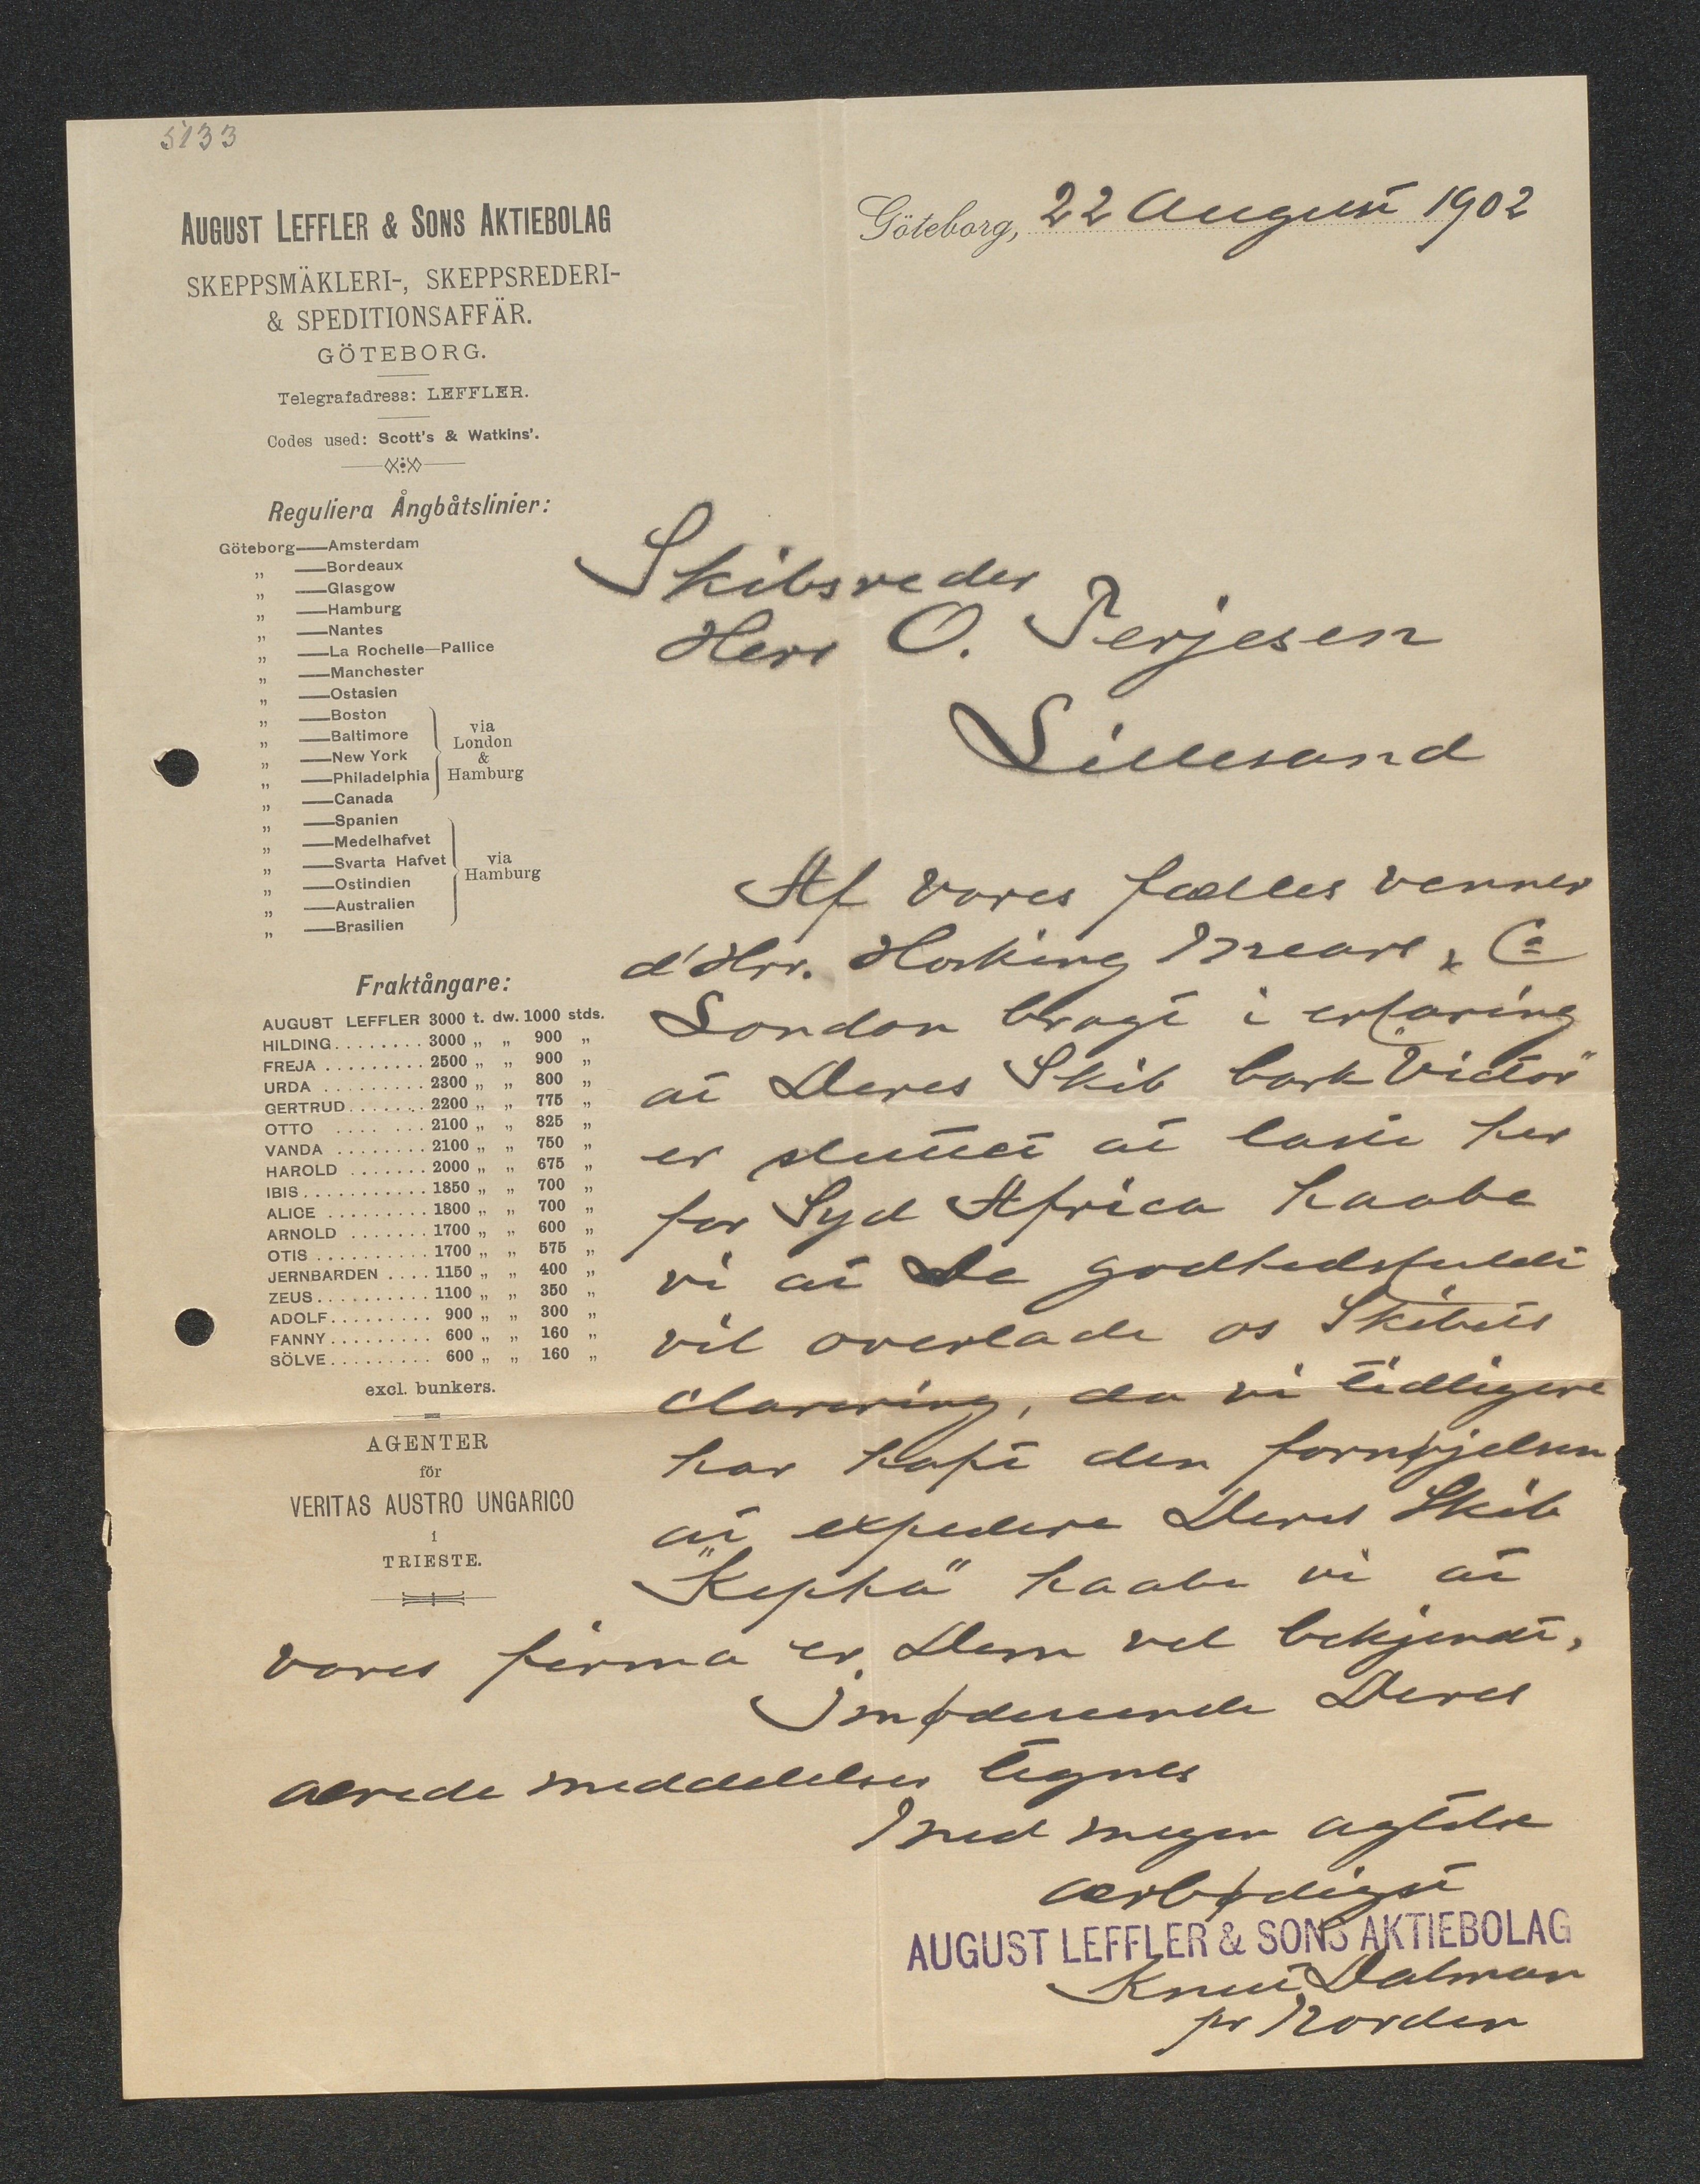 5133
AUGUST LEFFLER & SONS AKTIEBOLAG
SKEPPSMÄKLERI-, SKEPPSREDERI-
& SPEDITIONSAFFÄR.
GÖTEBORG.
Telegrafadress: LEFFLER.
Codes used: Scott's & Watkins'.
Göteborg, 22 August 1902
Reguliera Ångbåtslinier:
Göteborg—Amsterdam
„ —Bordeaux
„ —Glasgow
„ —Hamburg
„ —Nantes
„ —La Rochelle—Pallice
„ —Manchester
„ —Ostasien
„ —Boston
„ —Baltimore
„ —New York
„ —Philadelphia
„ —Canada
via
London
&
Hamburg
„ —Spanien
„ —Medelhafvet
„ —Svarta Hafvet
„ —Ostindien
„ —Australien
„ —Brasilien
via
Hamburg
Fraktångare:
AUGUST LEFFLER 3000 t. dw. 1000 stds.
HILDING........ 3000 „ „ 900 „
FREJA ......... 2500 „ „ 900 „
URDA ......... 2300 „ „ 800 „
GERTRUD....... 2200 „ „ 775 „
OTTO .... ... 2100 „ „ 825 „
VANDA ........ 2100 „ „ 750 „
HAROLD ....... 2000 „ „ 675 „
IBIS........... 1850 „ „ 700 „
ALICE ......... 1800 „ „ 700 „
ARNOLD ....... 1700 „ „ 600 „
OTIS .......... 1700 „ „ 575 „
JERNBARDEN .... 1150 „ „ 400 „
ZEUS.......... 1100 „ „ 350 „
ADOLF......... 900 „ „ 300 „
FANNY......... 600 „ „ 160 „
SÖLVE......... 600 „ „ 160 „
excl. bunkers.
AGENTER
för
VERITAS AUSTRO UNGARICO
i
TRIESTE.
Skibsreder
Herr O. Terjesen
Lillesand
Af vores fælles venner
d'Hrr. Hosking Mears & Co
London bragt i erfaring
at Deres Skib bark "Victor"
er sluttet at laste her
for Syd Africa haabe
vi at De godhedsfuldt
vil overlade os Skibets
clarering, da vi tidligere
har haft den fornøjelsen
at expedere Deres Skib
"Kepha" haabe vi at
vores firma er Dem vel bekjendt,
Imødeseende Deres
ærede meddelelser tegnes
Med megen agtelse
ærbødigst
AUGUST LEFFLER & SONS AKTIEBOLAG
Knut Dalman
pr Norden